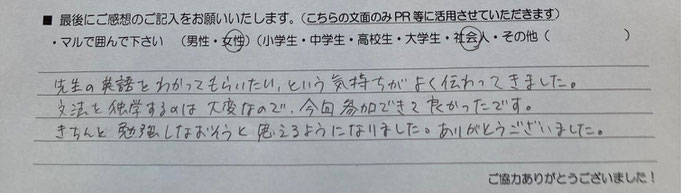 ■ 最後にご感想のご記入をお願いいたします。(こちらの文面のみPR等に活用させていただきます)
・マルで囲んで下さい (男性・女性)(小学生・中学生・高校生・大学生・社会人・その他( )
先生の英語をわかってもらいたい、という気持ちがよく伝わってきました。
文法を独学するのは大変なので、今回参加できて良かったです。
きちんと勉強しなおそうと思えるようになりました。ありがとうございました。
ご協力ありがとうございました!